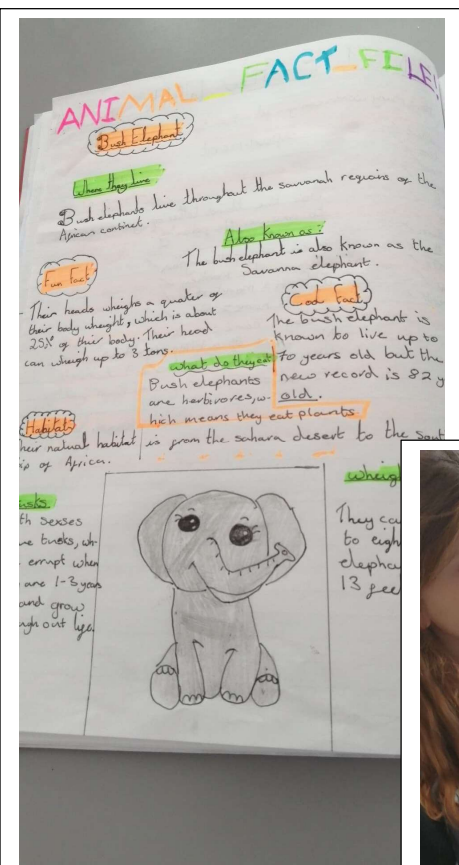 ANIMAL_ FACT_FILE!
Bush Elephant
Where they live
Bush elephants live throughout the savvanah regoins of the
African continet.
Also known as:
The bush elephant is also known as the
Savanna elephant.
Fun Fact
- Their heads wheighs a quater of
their body wheight, which is about
25% of their body. Their head
can wheigh up to 3 tons.
Fact
The bush elephant is
known to live up to
years old but the
new record is 82 y
old.
what do they eat
Bush elephants
are herbivores, w-
hich means they eat plaunts
Habitat
heir natural habitat is from the sahara desert to the sout
ip of Africa.
usks
th sexses
ve tusks, wh-
errupt when
are 1-3 years
and grow
ugh out life.
wheigh
They ca
to eigh
elepha
13 fee